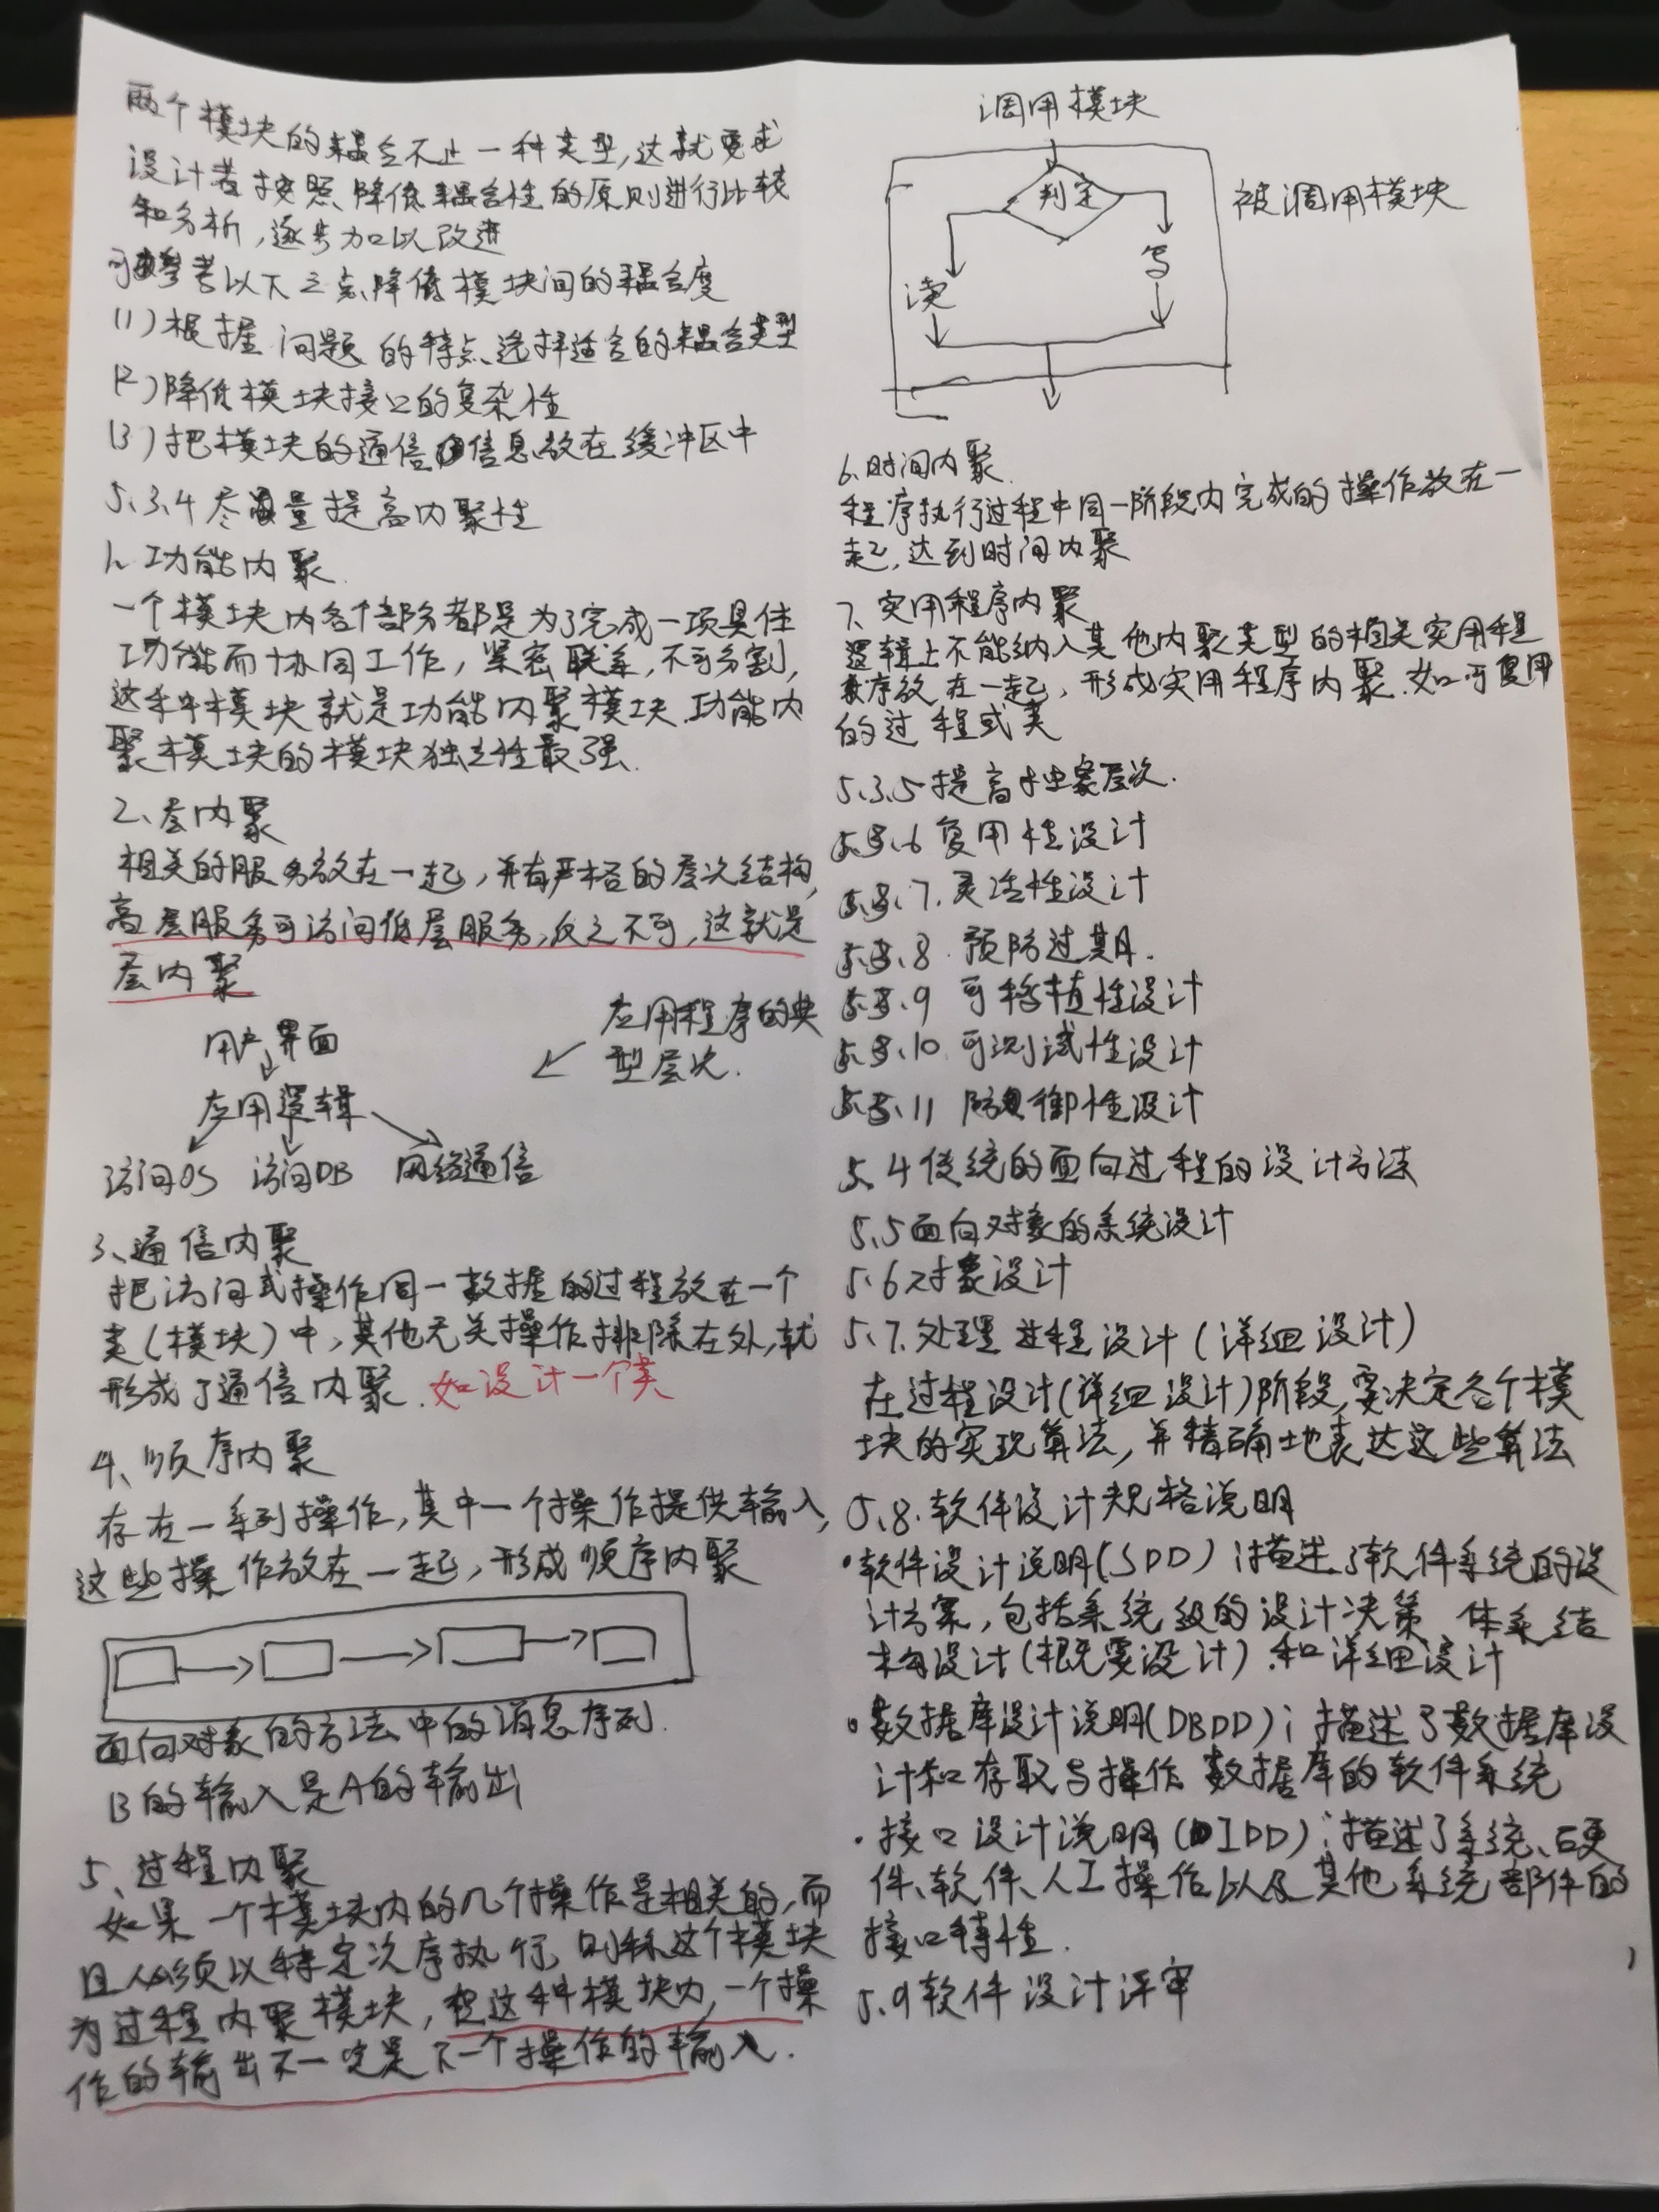 两个模块的耦合不止一种类型,这就要求
设计者按照降低耦合性的原则进行比较
和分析,逐步加以改进
可参考以下三点降低模块间的耦合度
(1)根据问题的特点选择适合的耦合类型
(2)降低模块接口的复杂性
(3)把模块的通信信息放在缓冲区中
5.3.4 尽量提高内聚性
1、功能内聚.
一个模块内各个部分都是为了完成一项具体
功能而协同工作,紧密联系,不可分割,
这种模块就是功能内聚模块.功能内
聚模块的模块独立性最强.
2、层内聚
相关的服务放在一起,并有严格的层次结构,
高层服务可访问低层服务,反之不可,这就是
层内聚
应用程序的典
型层次.
用户界面
应用逻辑
访问OS 访问DB 网络通信
3、通信内聚
把访问或操作同一数据的过程放在一个
类(模块)中,其他无关操作排除在外,就
形成了通信内聚.如设计一个类
4、顺序内聚
存在一系列操作,其中一个操作提供输入,
这些操作放在一起,形成顺序内聚
面向对象的方法中的消息序列.
B的输入是A的输出
5、过程内聚
如果一个模块内的几个操作是相关的,而
且必须以特定次序执行,则称这个模块
为过程内聚模块,但这种模块内,一个操
作的输出不一定是下一个操作的输入.
调用模块
判定
被调用模块
读
写
6.时间内聚
程序执行过程中同一阶段内完成的操作放在一
起,达到时间内聚
7、实用程序内聚
逻辑上不能纳入其他内聚类型的相关实用程
序放在一起,形成实用程序内聚.如可复用
的过程或类
5.3.5 提高抽象层次.
5.3.6 复用性设计
5.3.7.灵活性设计
5.3.8.预防过期.
5.3.9 可移植性设计
5.3.10.可测试性设计
5.3.11 防御性设计
5.4 传统的面向过程的设计方法
5.5 面向对象的系统设计
5.6 对象设计
5.7.处理过程设计(详细设计)
在过程设计(详细设计)阶段,要决定各个模
块的实现算法,并精确地表达这些算法
5.8.软件设计规格说明
·软件设计说明(SDD):描述了软件系统的设
计方案,包括系统级的设计决策、体系结
构设计(概要设计)和详细设计
·数据库设计说明(DBDD):描述了数据库设
计和存取与操作数据库的软件系统
·接口设计说明(IDD):描述了系统、硬
件、软件、人工操作以及其他系统部件的
接口特性.
5.9 软件设计评审